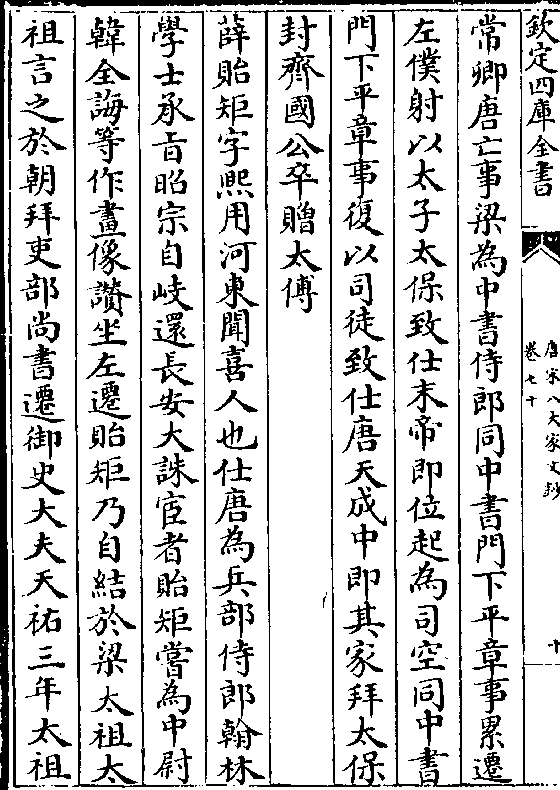 欽定四庫全書
唐宋八大家文鈔
卷七十
十
常卿唐亡事梁為中書侍郎同中書門下平章事累遷
左僕射以太子太保致仕末帝即位起為司空同中書
門下平章事復以司徒致仕唐天成中即其家拜太保
封齊國公卒贈太傅
薛貽矩字熈用河東聞喜人也仕唐為兵部侍郎翰林
學士承旨昭宗自岐還長安大誅宦者貽矩嘗為中尉
韓全誨等作畫像讚坐左遷貽矩乃自結於梁太祖太
祖言之於朝拜吏部尚書遷御史大夫天祐三年太祖